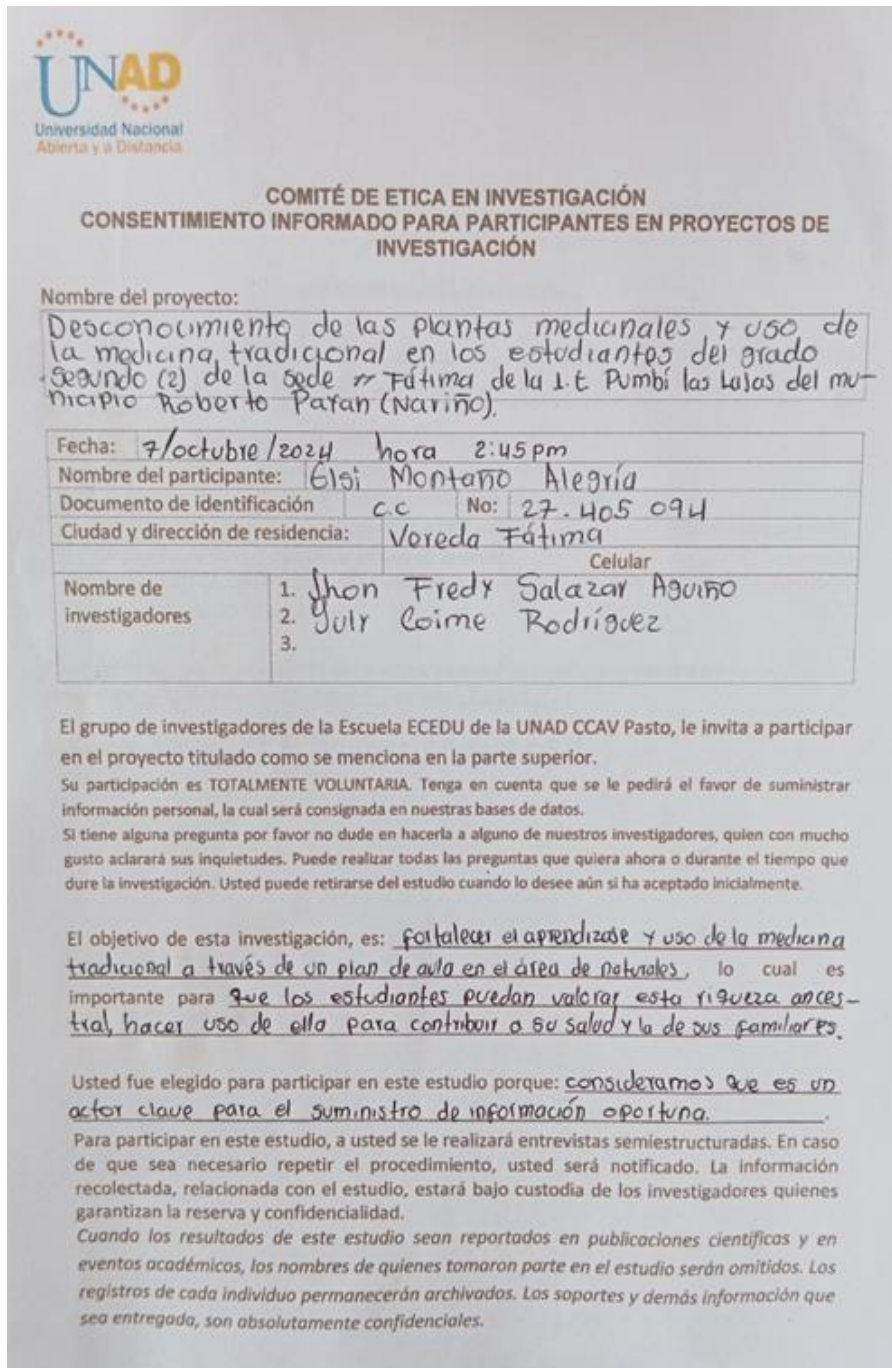 UNAD
Universidad Nacional
Abierta y a Distancia
COMITÉ DE ETICA EN INVESTIGACIÓN
CONSENTIMIENTO INFORMADO PARA PARTICIPANTES EN PROYECTOS DE
INVESTIGACIÓN
Nombre del proyecto:
Desconocimiento de las plantas medicinales y uso de
la medicina tradicional en los estudiantes del grado
segundo (2) de la sede # Fátima de la I.E Pumbí las Lajas del mu-
nicipio Roberto Payan (Nariño).
Fecha: 7/octubre/2024 hora 2:45pm
Nombre del participante: Elsi Montaño Alegría
Documento de identificación c.c No: 27.405 094
Ciudad y dirección de residencia: Vereda Fátima
Celular
Nombre de 1. Jhon Fredy Salazar Aguiño
investigadores 2. Yuly Coime Rodríguez
3.
El grupo de investigadores de la Escuela ECEDU de la UNAD CCAV Pasto, le invita a participar
en el proyecto titulado como se menciona en la parte superior.
Su participación es TOTALMENTE VOLUNTARIA. Tenga en cuenta que se le pedirá el favor de suministrar
información personal, la cual será consignada en nuestras bases de datos.
Si tiene alguna pregunta por favor no dude en hacerla a alguno de nuestros investigadores, quien con mucho
gusto aclarará sus inquietudes. Puede realizar todas las preguntas que quiera ahora o durante el tiempo que
dure la investigación. Usted puede retirarse del estudio cuando lo desee aún si ha aceptado inicialmente.
El objetivo de esta investigación, es: fortalecer el aprendizase y uso de la medicina
tradicional a través de un plan de aula en el área de naturales, lo cual es
importante para que los estudiantes puedan valorar esta riqueza ances-
tral, hacer uso de ello para contribuir a su salud y la de sus familiares.
Usted fue elegido para participar en este estudio porque: consideramos que es un
actor clave para el suministro de información oportuna.
Para participar en este estudio, a usted se le realizará entrevistas semiestructuradas. En caso
de que sea necesario repetir el procedimiento, usted será notificado. La información
recolectada, relacionada con el estudio, estará bajo custodia de los investigadores quienes
garantizan la reserva y confidencialidad.
Cuando los resultados de este estudio sean reportados en publicaciones científicas y en
eventos académicos, los nombres de quienes tomaron parte en el estudio serán omitidos. Los
registros de cada individuo permanecerán archivados. Los soportes y demás información que
sea entregada, son absolutamente confidenciales.